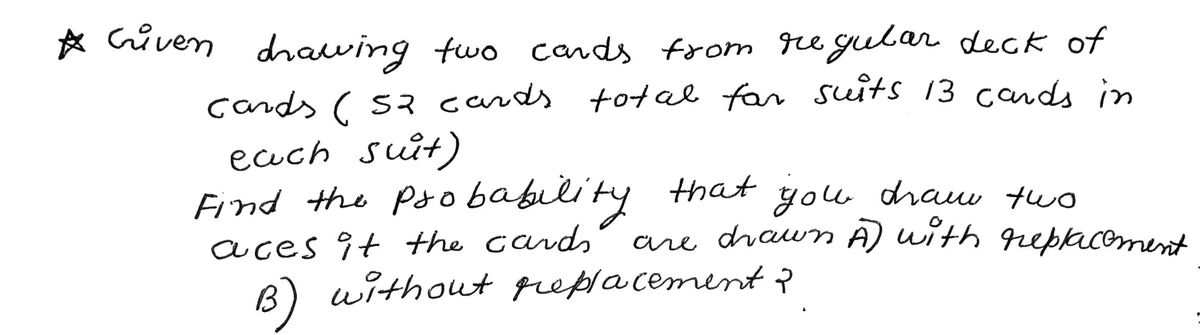 ☆ Given drawing two cards from regular deck of
cards ( 52 cards total for suits 13 cards in
each suit)
Find the probability that you draw two
aces it the cards are drawn A) with replacement
B) without replacement ?